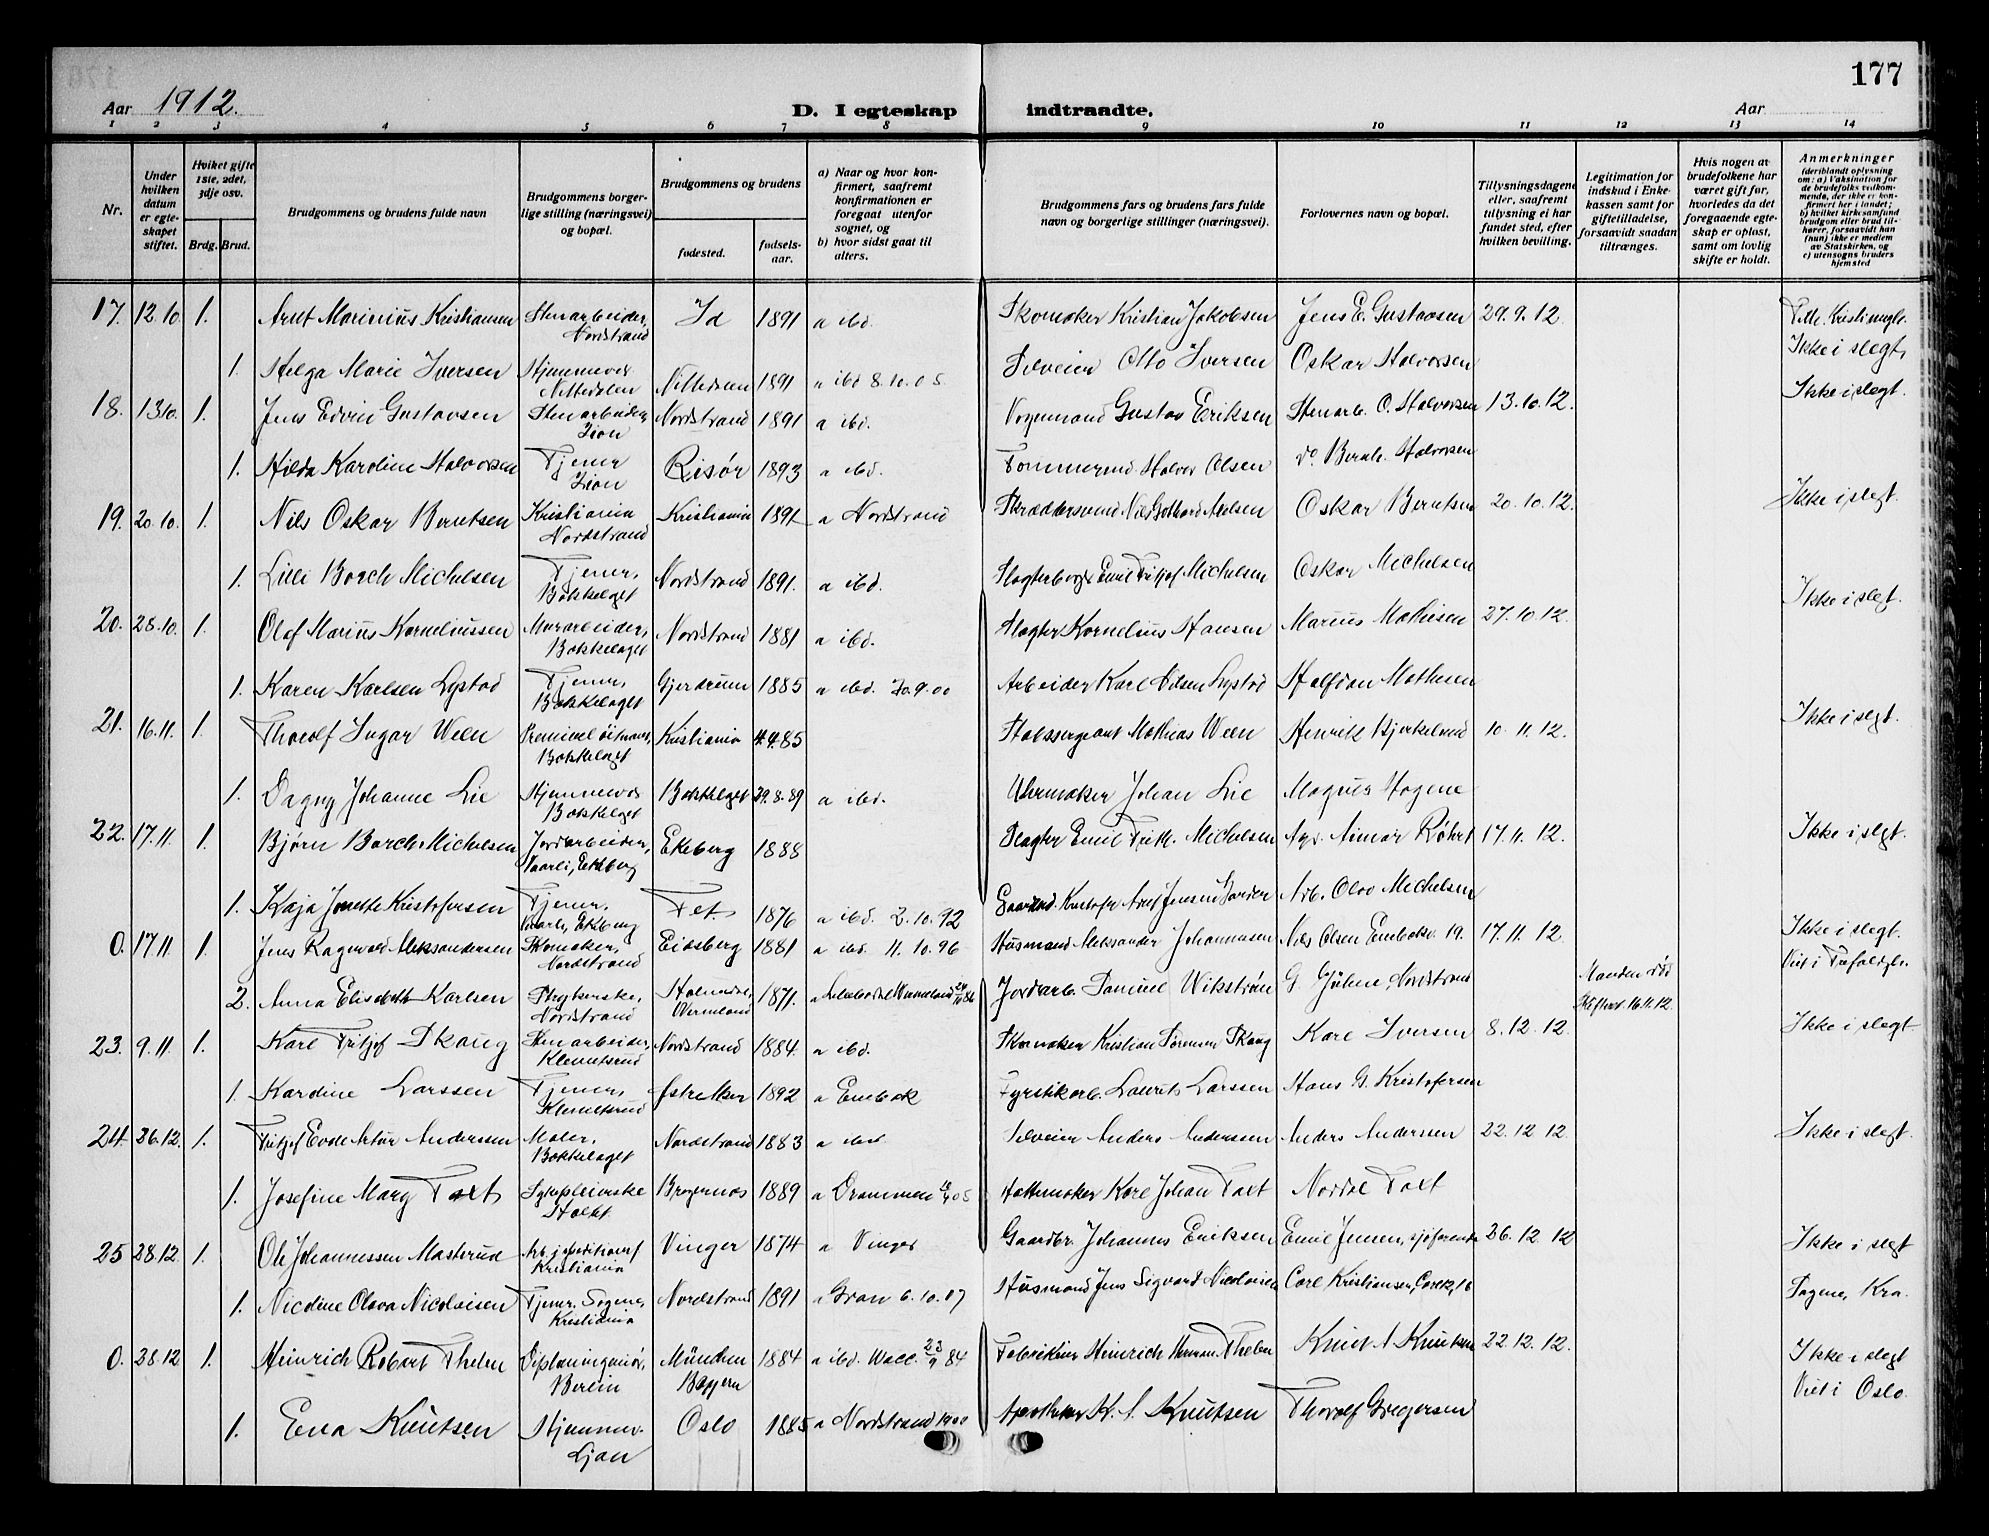 Aar 1912. D. I egteskap indtraadte. Aar 177
1 2 3 4 5 6 7 8 9 10 11 12 13 14
Nr.
Under hvilken datum er egteskapet stiftet.
Hvilket gifte 1ste, 2det, 3dje osv.
Brdg. Brud.
Brudgommens og brudens fulde navn
Brudgommens borgerlige stilling (næringsvei) og bopæl.
Brudgommens og brudens
fødested. fødselsaar.
a) Naar og hvor konfirmert, saafremt konfirmationen er foregaat utenfor sognet, og
b) hvor sidst gaat til alters.
Brudgommens fars og brudens fars fulde navn og borgerlige stillinger (næringsvei).
Forlovernes navn og bopæl.
Tillysningsdagene eller, saafremt tillysning ei har fundet sted, efter hvilken bevilling.
Legitimation for indskud i Enkekassen samt for giftetilladelse, forsaavidt saadan tiltrænges.
Hvis nogen av brudefolkene har været gift før, hvorledes da det foregaaende egteskap er opløst, samt om lovlig skifte er holdt.
Anmerkninger (deriblandt oplysning om: a) Vaksination for de brudefolks vedkommende, der ikke er konfirmert her i landet; b) hvilket kirkesamfund brudgom eller brud tilhører, forsaavidt han (hun) ikke er medlem av Statskirken, og c) utensogns bruders hjemsted
17. 12.10 1. Arnt Marinius Kristiansen Stenarbeider, Nordstrand Id 1891 a ibd. Skomaker Kristian Jakobsen Jens E. Gustavsen 29.9.12. Ikke i slegt.
1. Helga Marie Iversen Hjemmev. Nittedalen Nittedalen 1891 a ibd 8.10.05 Otto Iversen Oskar Halvorsen
18. 13.10. 1. Jens Edvin Gustavsen Stenarbeider, Lian Nordstrand 1891 a ibd. Vognmand Gustav Eriksen Stenarb. O. Halvorsen 13.10.12. Ikke i slegt.
1. Hilda Karoline Halvorsen Tjener Lian Risør 1893 a ibd. Tømmermd. Halvor Olsen do Bernh. Halvorsen
19. 20.10. 1. Nils Oskar Berntsen Kristiania Nordstrand Kristiania 1891 a Nordstrand Skræddersvend Oskar Berntsen 20.10.12. Ikke i slegt.
1. Lilli Borch Michelsen Tjener, Bækkelaget Nordstrand 1891. a ibd. Emil Fritjof Michelsen Oskar Michelsen
20. 28.10. 1. Olaf Marius Korneliussen Murarbeider, Bækkelaget Nordstrand 1881 a ibd. Slagter Kornelius Hansen Marius Mathiesen 27.10.12. Ikke i slegt.
1. Karen Karlsen Lystad Tjener, Bækkelaget Gjerdrum 1885 a ibd. 30.9.00 Arbeider Karl Nilsen Lystad Halfdan Mathesen
21. 16.11. 1. Thorolf Ingar Ween Bækkelaget Kristiania 4.4.85 Stabssergeant Mathias Ween Henrik Bjerkelund 10.11.12. Ikke i slegt.
1. Dagny Johanne Lie Hjemmevær. Bækkelaget Bækkelaget 29.8.89 a ibd. Uhrmaker Johan Lie Magnus Hagene
22. 17.11. 1. Bjørn Borch Michelsen Jordarbeider, Vaarli, Ekeberg Ekeberg 1888 Slagter Emil Frith. Michelsen Agr. Aimar Røhrt 17.11.12. Ikke i slegt.
1. Kaja Jonette Kristofersen Tjener, Vaarli, Ekeberg Fet 1876 a ibd. 2.10.92 Arb. Olav Michelsen
0. 17.11 1. Jens Ragnvald Aleksandersen Skomaker, Nordstrand Eidsberg 1881 a ibd. 11.10.96 Husmand Aleksander Johannesen Nils Olsen Enebakv. 19. 17.11.12. Ikke i slegt. Viet i Trefoldgh.
2. Anna Elisabeth Karlsen Strykerske, Nordstrand Wermland 1871. Jordarb. Daniel Wikstrøm G. Gjølme Nordstrand Manden død Skifteret. 16.11.12.
23. 9.11. 1. Karl Fritjof Skaug Stenarbeider, Klemetsrud Nordstrand 1884. a ibd. Skomaker Kristian Sørensen Skaug Karl Iversen 8.12.12. Ikke i slegt
1. Karoline Larssen Tjener, Klemetsrud Østre Aker 1892 a Enebak Fyrstikarb. Laurits Larssen Hans G. Kristofersen
24. 26.12. 1. Fritjof Artur Anderssen Maler, Bækkelaget Nordstrand 1883 a ibd Anders Anderssen Anders Anderssen 22.12.12. Ikke i slegt.
1. Josefine Mary Taxt Sykepleierske Bragernæs 1889 a Drammen Hattemaker Karl Johan Taxt Nordal Taxt
25 28.12 1. Ole Johannessen Masterud Kristiania Vinger 1874 a Vinger Gaardbr. Johannes Eriksen Emil Jensen, 26.12.12 Ikke i slegt
1. Nicoline Olava Nicolaisen Tjener. Sagene, Kristiania Nordstrand 1891 a Gran 6.10.07 Husmand Jens Sigvard Nicolaisen Carl Kristiansen, Sagene, Kra.
0. 28.12 1. Heinrich Robert Thelen Diplomingeniør, Berlin München Bayern 1884 a ibd. Vacc. 23/9 84 Heinrich Herman Thelen Knut A Knutsen 22.12.12. Ikke i slegt Viet i Oslo.
1. Ena Knutsen Hjemmev. Ljan Oslo 1885 a Nordstrand 1900 Apotheker K. A. Knutsen Thorolf Gregersen